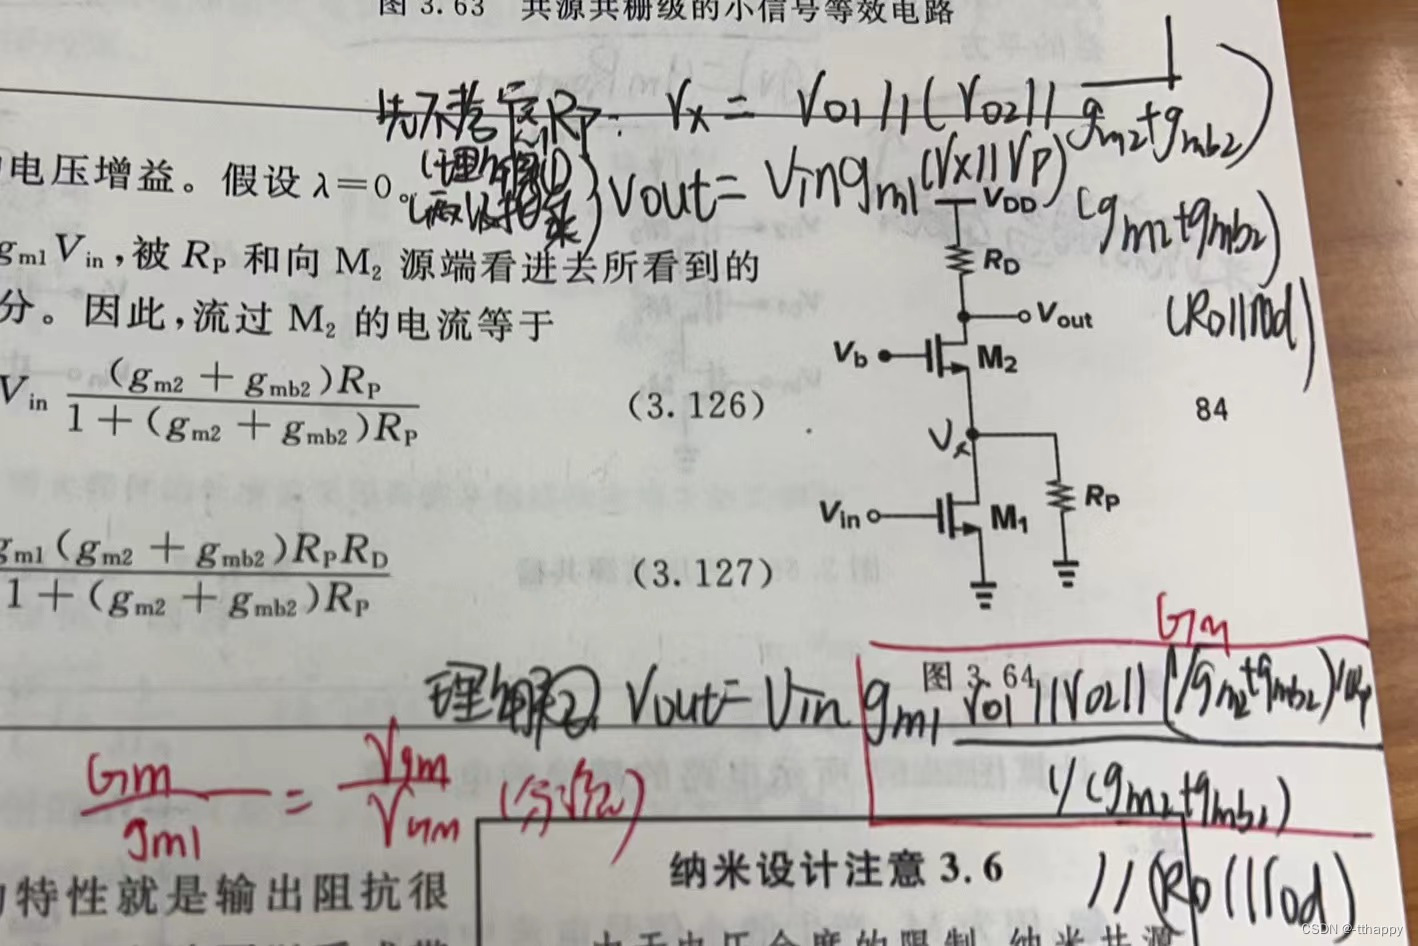 图 3.63 共源共栅级的小信号等效电路
先不考虑Rp: rx = ro1 // ( ro2 // 1
gm2+gmb2 )
电压增益。假设 λ=0。
(理解①
Vout = Vin gm1 (rx//rp)
(gm2+gmb2)
(RD//rod)
gm1 Vin,被 RP 和向 M2 源端看进去所看到的
分。因此,流过 M2 的电流等于
Vin (gm2 + gmb2)RP / 1 + (gm2 + gmb2)RP (3.126)
gm1 (gm2 + gmb2)RP RD / 1 + (gm2 + gmb2)RP (3.127)
VDD
RD
Vout
Vb
M2
Vx
Vin
M1
RP
84
Gm
图 3.64
理解②. Vout = Vin gm1 ro1 // ro2 // (1/gm2+gmb2) //
1/(gm2+gmb2)
//(RD//rod)
Gm / gm1 = rgm / rGm (分流)
纳米设计注意 3.6
特性就是输出阻抗很
CSDN @-tthappy